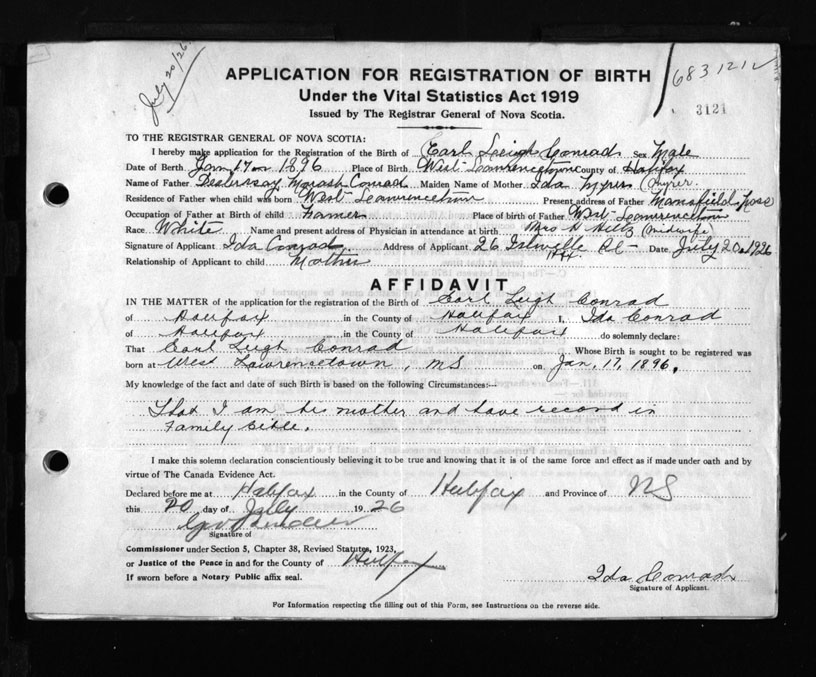 July 20/26
683 1212
3121
APPLICATION FOR REGISTRATION OF BIRTH
Under the Vital Statistics Act 1919
Issued by The Registrar General of Nova Scotia.
TO THE REGISTRAR GENERAL OF NOVA SCOTIA:
I hereby make application for the Registration of the Birth of Earl Leigh Conrad Sex Male
Date of Birth Jan 17 1896 Place of Birth West Lawrencetown County of Halifax
Name of Father Conrad Maiden Name of Mother Ida Myrer
Residence of Father when child was born West Lawrencetown Present address of Father Mansfield
Occupation of Father at Birth of child Farmer Place of birth of Father West Lawrencetown
Race White Name and present address of Physician in attendance at birth Mrs (Midwife)
Signature of Applicant Ida Conrad. Address of Applicant 26 Date July 20 1926
Relationship of Applicant to child Mother
AFFIDAVIT
IN THE MATTER of the application for the registration of the Birth of Earl Leigh Conrad
of Halifax in the County of Halifax I, Ida Conrad
of Halifax in the County of Halifax do solemnly declare:
That Earl Leigh Conrad Whose Birth is sought to be registered was
born at West Lawrencetown, NS on Jan, 17, 1896.
My knowledge of the fact and date of such Birth is based on the following Circumstances:—
That I am his mother and have record in
Family Bible.
I make this solemn declaration conscientiously believing it to be true and knowing that it is of the same force and effect as if made under oath and by
virtue of The Canada Evidence Act.
Declared before me at Halifax in the County of Halifax and Province of NS
this 20 day of July 1926
Signature of
Commissioner under Section 5, Chapter 38, Revised Statutes, 1923,
or Justice of the Peace in and for the County of Halifax
If sworn before a Notary Public affix seal.
Ida Conrad
Signature of Applicant.
For Information respecting the filling out of this Form, see Instructions on the reverse side.